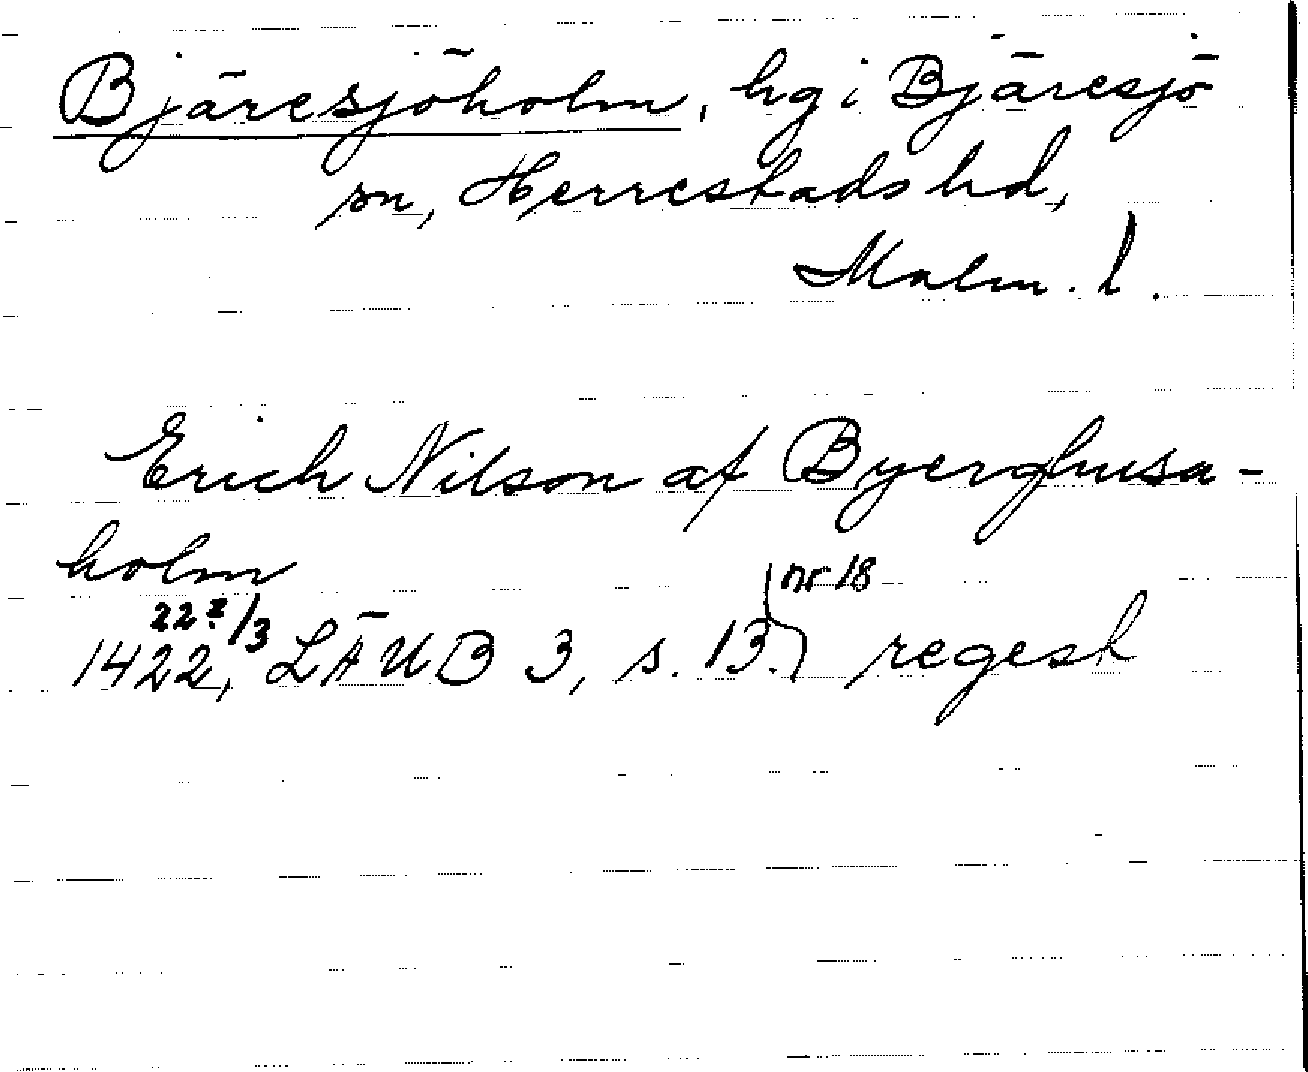 Bjäresjöholm, hg i Bjäresjö
sn, Herrestads hd,
Malm. l.
Erich Nilson af Byerghusa-
holm
22?/3 nr 18
1422, LÄUB 3, s. 13. regest